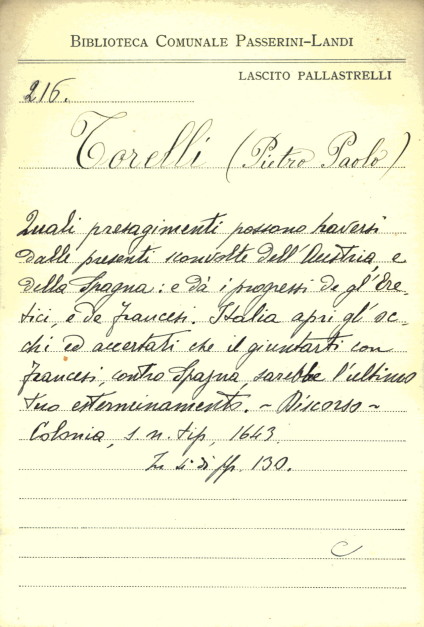 BIBLIOTECA COMUNALE PASSERINI-LANDI
LASCITO PALLASTRELLI
216.
Torelli (Pietro Paolo)
Quali presagimenti possono haversi
dalle presenti sconvolte dell'Austria e
della Spagna: e da i progressi de gl'Ere-
tici, e de Francesi. Italia apri gl'oc-
chi ed accertati che il giuntarti con
Francesi, contro Spagna, sarebbe l'ultimo
tuo esterminamento. ~ Discorso ~
Colonia, s. n. tip, 1643.
pp. 130.